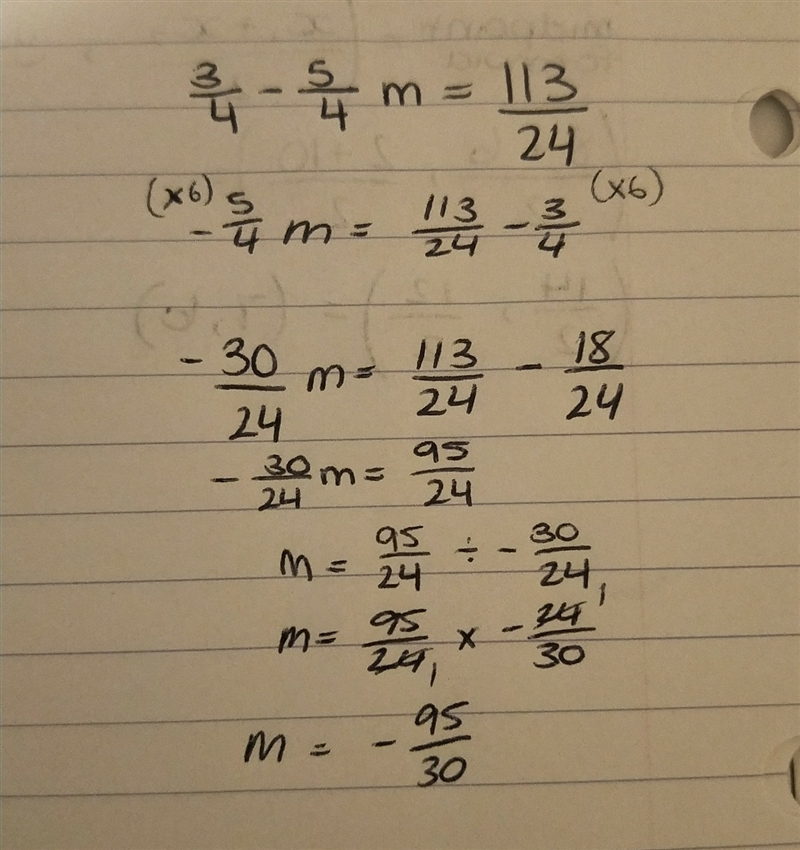 3/4 - 5/4 m = 113/24
(x6) - 5/4 m = 113/24 - 3/4 (x6)
- 30/24 m = 113/24 - 18/24
- 30/24 m = 95/24
m = 95/24 ÷ - 30/24
m = 95/24 1 x - 24/30 1
m = - 95/30